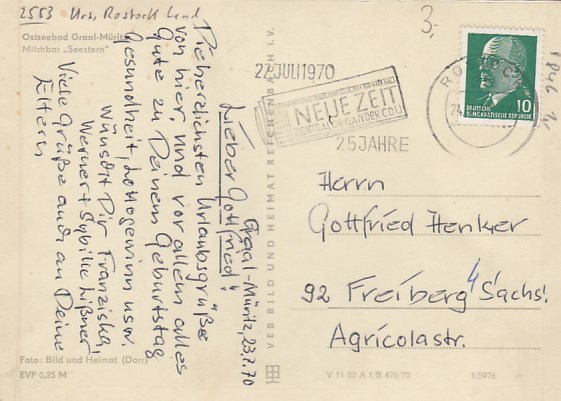 2553 Krs. Rostock Land
Ostseebad Graal-Müritz
Milchbar „Seestern"
Graal-Müritz, 23.7.70
Lieber Gottfried!
Die herzlichsten Urlaubsgrüße
von hier und vor allem alles
Gute zu Deinem Geburtstag
Gesundheit, Lottogewinn usw.
wünscht Dir Franziska,
Werner + Sybille Lißner
Viele Grüße auch an Deine
Eltern
Foto: Bild und Heimat (Darr)
EVP 0,25 M
VEB BILD UND HEIMAT REICHENBACH I. V.
3,-
22 JULI 1970
NEUE ZEIT
ZENTRALORGAN DER CDU
25 JAHRE
10
DEUTSCHE
DEMOKRATISCHE REPUBLIK
Herrn
Gottfried Henker
92 Freiberg/Sachs.
Agricolastr.
V 11 50 A 1/B 476/70
1/5976